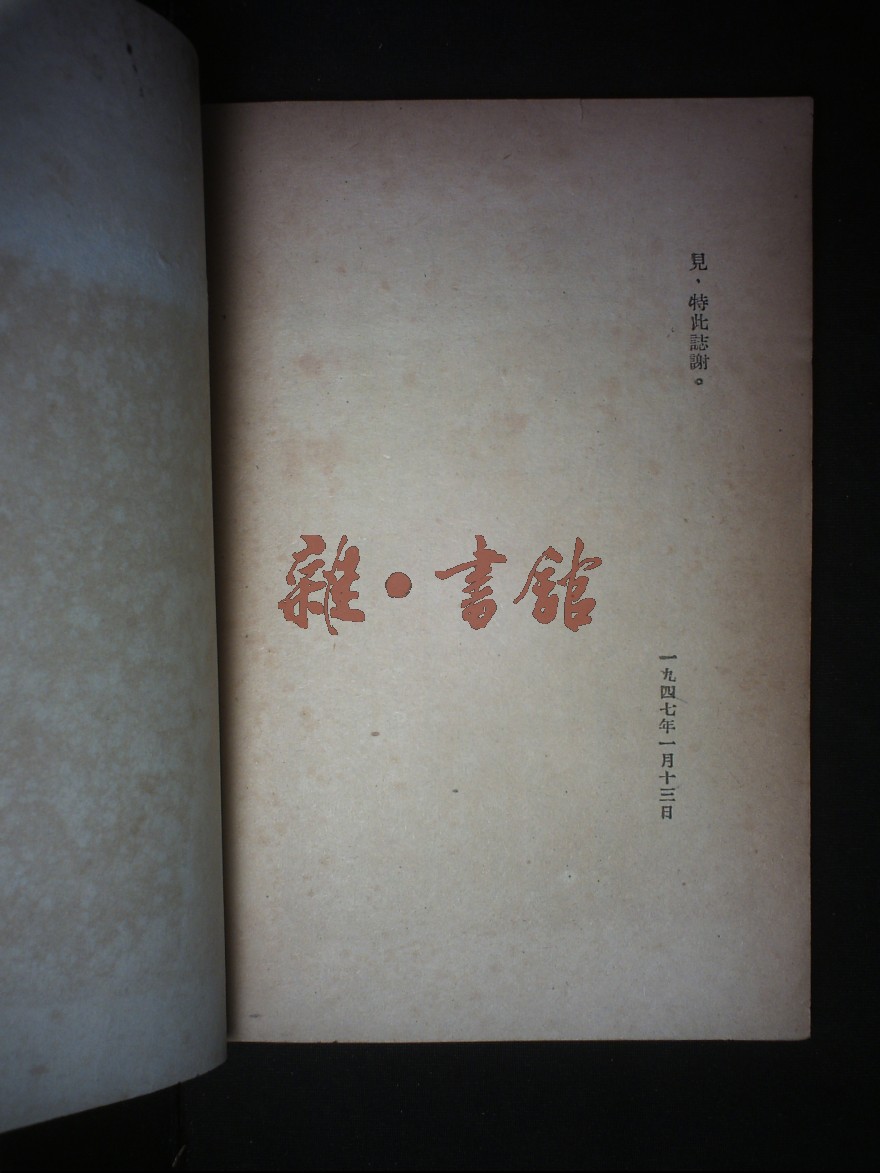 見、特此誌謝。
一九四七年一月十三日
雜·書館